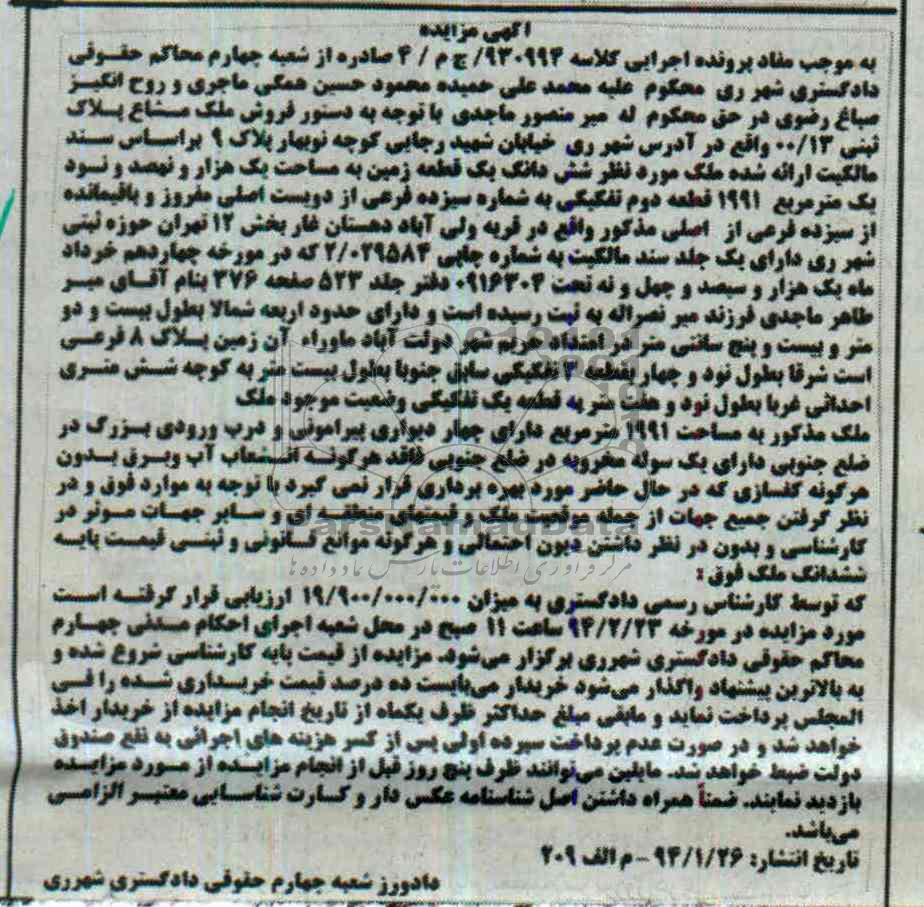 آگهی مزایده
به موجب مفاد پرونده اجرایی کلاسه ۹۳۰۹۹۴/ ج م / ۴ صادره از شعبه چهارم محاکم حقوقی
دادگستری شهر ری محکوم علیه محمد علی حمیده محمود حسین همگی ماجری و روح انگیز
صباغ رضوی در حق محکوم له میر منصور ماجدی با توجه به دستور فروش ملک مشاع پلاک
ثبتی ۰۰/۱۳ واقع در آدرس شهر ری خیابان شهید رجایی کوچه نوبهار پلاک ۹ براساس سند
مالکیت ارائه شده ملک مورد نظر شش دانگ یک قطعه زمین به مساحت یک هزار و نهصد و نود
یک مترمربع ۱۹۹۱ قطعه دوم تفکیکی به شماره سیزده فرعی از دویست اصلی مفروز و باقیمانده
از سیزده فرعی از اصلی مذکور واقع در قریه ولی آباد دهستان غار بخش ۱۲ تهران حوزه ثبتی
شهر ری دارای یک جلد سند مالکیت به شماره چاپی ۲/۰۲۹۵۸۴ که در مورخه چهاردهم خرداد
ماه یک هزار و سیصد و چهل و نه تحت ۰۹۱۶۳۰۴ دفتر جلد ۵۲۳ صفحه ۳۷۶ بنام آقای میر
طاهر ماجدی فرزند میر نصراله به ثبت رسیده است و دارای حدود اربعه شمالا بطول بیست و دو
متر و بیست و پنج سانتی متر در امتداد حریم شهر دولت آباد ماوراء آن زمین پلاک ۸ فرعی
است شرقا بطول نود و چهار بقطعه ۳ تفکیکی سابق جنوبا بطول بیست متر به کوچه شش متری
احداثی غربا بطول نود و هفت متر به قطعه یک تفکیکی وضعیت موجود ملک
ملک مذکور به مساحت ۱۹۹۱ مترمربع دارای چهار دیواری پیرامونی و درب ورودی بزرگ در
ضلع جنوبی دارای یک سوله مخروبه در ضلع جنوبی فاقد هرگونه انشعاب آب وبرق بدون
هرگونه کفسازی که در حال حاضر مورد بهره برداری قرار نمی گیرد با توجه به موارد فوق و در
نظر گرفتن جمیع جهات از جمله موقعیت ملک و قیمتهای منطقه ای و سایر جهات موثر در
ParsNamadData
کارشناسی و بدون در نظر داشتن دیون احتمالی و هرگونه موانع قانونی و ثبتی قیمت پایه
مرکز فرآوری اطلاعات پارس نماد داده ها
ششدانگ ملک فوق:
که توسط کارشناس رسمی دادگستری به میزان ۱۹/۹۰۰/۰۰۰/۰۰۰ ارزیابی قرار گرفته است
مورد مزایده در مورخه ۹۴/۲/۲۳ ساعت ۱۱ صبح در محل شعبه اجرای احکام مدنی چهارم
محاکم حقوقی دادگستری شهرری برگزار می‌شود. مزایده از قیمت پایه کارشناسی شروع شده و
به بالاترین پیشنهاد واگذار می‌شود خریدار می‌بایست ده درصد قیمت خریداری شده را فی
المجلس پرداخت نماید و مابقی مبلغ حداکثر ظرف یکماه از تاریخ انجام مزایده از خریدار اخذ
خواهد شد و در صورت عدم پرداخت سپرده اولی پس از کسر هزینه های اجرائی به نفع صندوق
دولت ضبط خواهد شد. مایلین می‌توانند ظرف پنج روز قبل از انجام مزایده از مورد مزایده
بازدید نمایند. ضمناً همراه داشتن اصل شناسنامه عکس دار و کارت شناسایی معتبر الزامی
می‌باشد.
تاریخ انتشار: ۹۴/۱/۲۶ - م الف ۲۰۹
دادورز شعبه چهارم حقوقی دادگستری شهرری